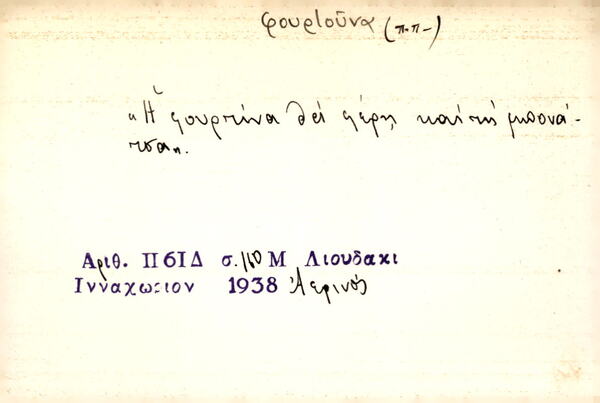 φουρτοῦνα (π.π-)
"Ἡ φουρτύνα θὰ φέρῃ καὶ τὴ μπονά-
τσα".
Αριθ. Π61Δ σ. 110 Μ Λιουδακι
Ινναχωριον 1938 Ἀερινός